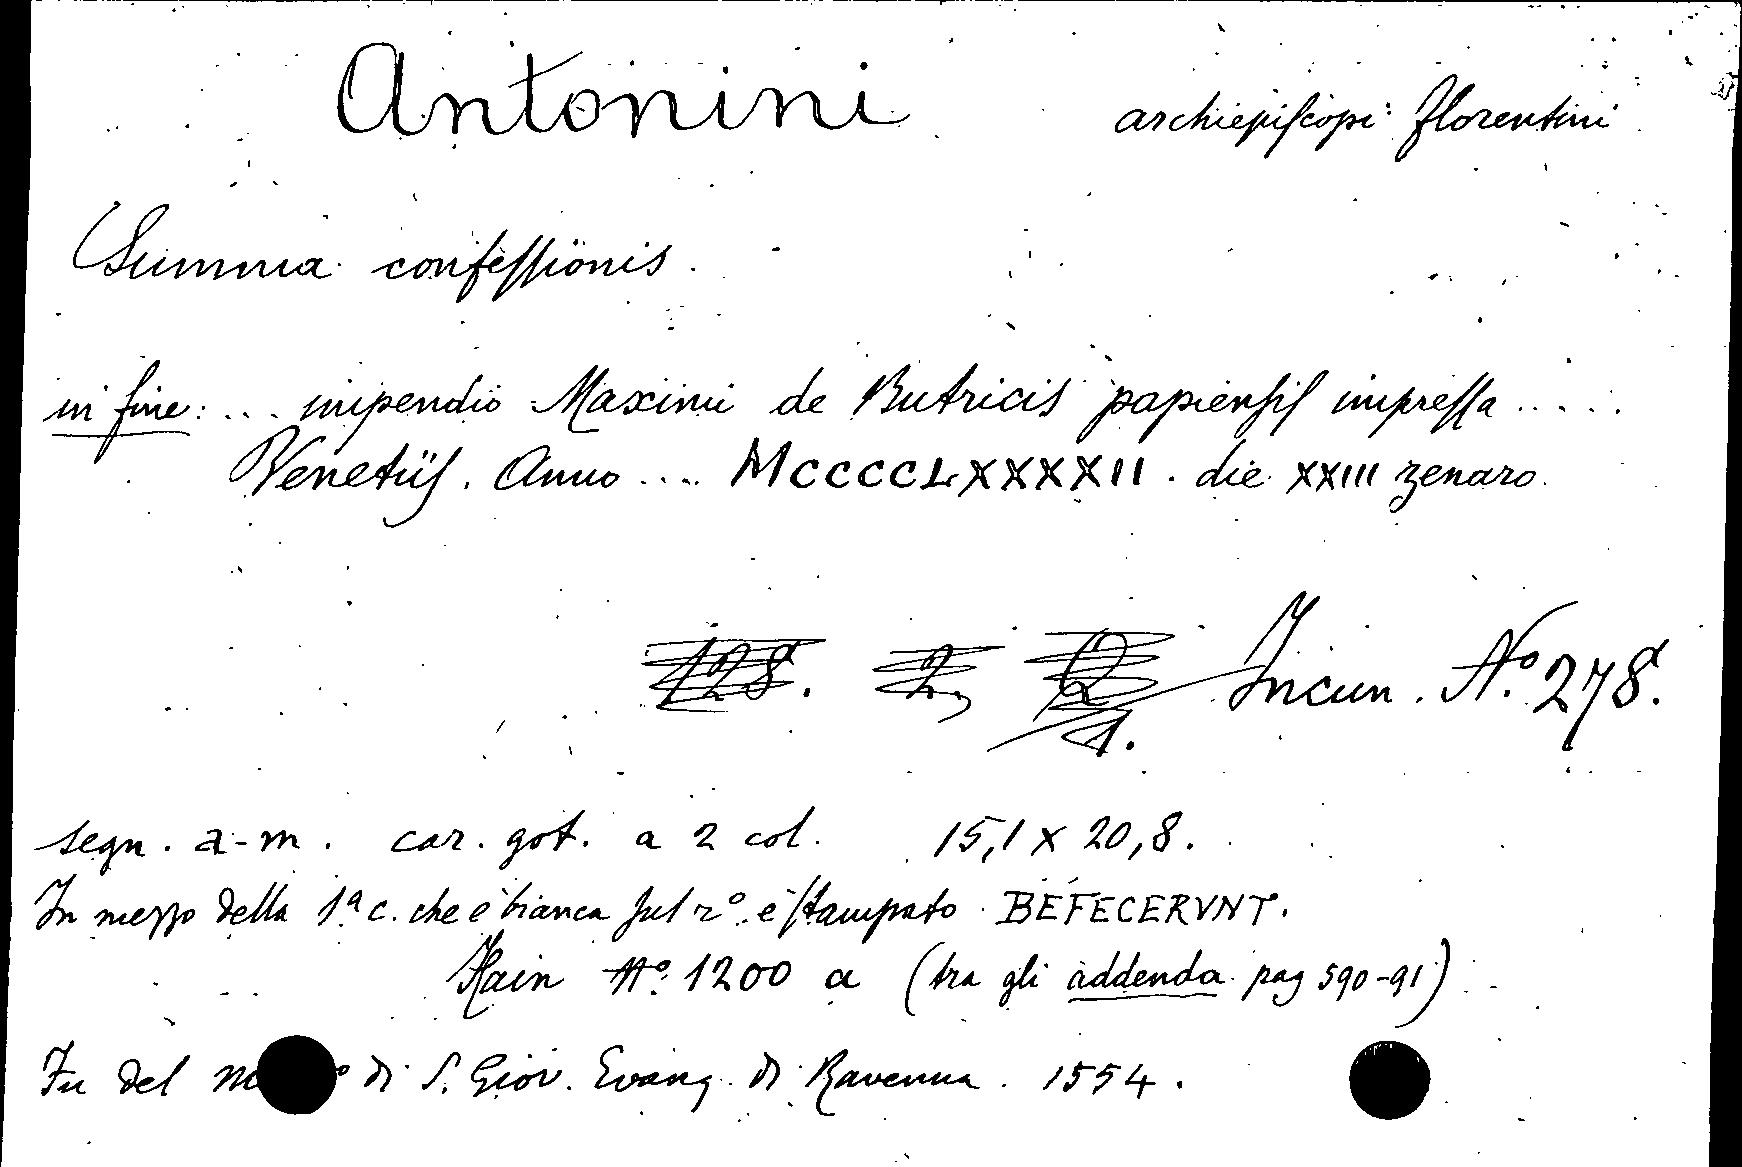 Antonini archiepiſcopi florentini
Summa confeſſionis.
in fine: ... inpendio Maximi de Butricis papienſiſ impreſſa .....
Venetiiſ. Anno .... MCCCCLXXXXII. die XXIII zenaro.
128. 2, Q Incun. Nº 278.
1.
segn. a-m. car. got. a 2 col. 15,1 x 20,8.
In mezzo della 1ª c. che è bianca ſul rº. è ſtampato BEFECERVNT.
Hain Nº. 1200 a (tra gli addenda pag 590-91)
Fu del di S. Giov. Evang. di Ravenna. 1554.